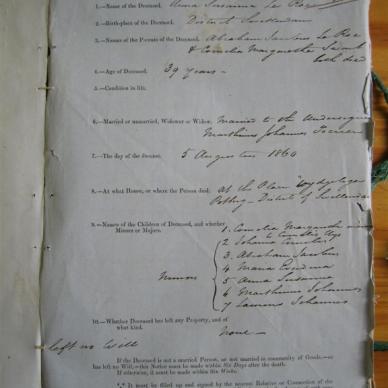 1.—Name of the Deceased, Anna Susanna Le Roux
2.—Birth-place of the Deceased, District Swellendam
3.—Names of the Parents of the Deceased, Abraham Jacobus Le Roux
& Cornelia Margaretha
both dead
4.—Age of Deceased, 39 years –
5.—Condition in life.
6.—Married or unmarried, Widower or Widow, Married to the Undersigned
Marthinus Johannes
7.—The day of the decease, 5 Augustus 1860
8.—At what House, or where the Person died; At the Place
District of Swellendam
9.—Names of the Children of Deceased, and whether
Minors or Majors.
1. Cornelia Margaretha
2
3. Abraham Jacobus
4 Maria
Minors
5 Anna Susanna
6 Marthinus Johannes
7 Johannes
10.—Whether Deceased has left any Property, and of
what kind.
None –
left no Will
If the Deceased is not a married Person, or not married in community of Goods,—or
has left no Will,—this Notice must be made within Six Days after the death.
If otherwise, it must be made within Six Weeks.
*** It must be filled up and signed by the nearest Relative or Connection of the